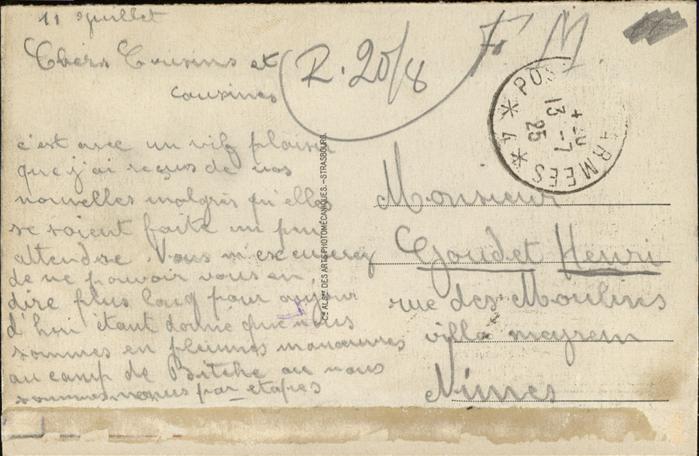 11 Juillet
Chers Cousins et
cousines
c'est avec un vif plaisir
que j'ai reçus de vos
nouvelles malgrés qu'elles
se soient faite un peu
attendre. Vous m'excuserez
de ne pouvoir vous en
dire plus long pour aujour
d'hui étant donné que nous
sommes en pleines manœuvres
au camp de Bitche ou nous
sommes venus par etapes
R. 20/8
F M
POS ARMEES * 4 *
13 -7
25
Cie ALSne DES ARTS PHOTOMÉCANIQUES.-STRASBOURG.
Monsieur
Goudet Henri
rue des Moulins
villa meyrem
Nîmes